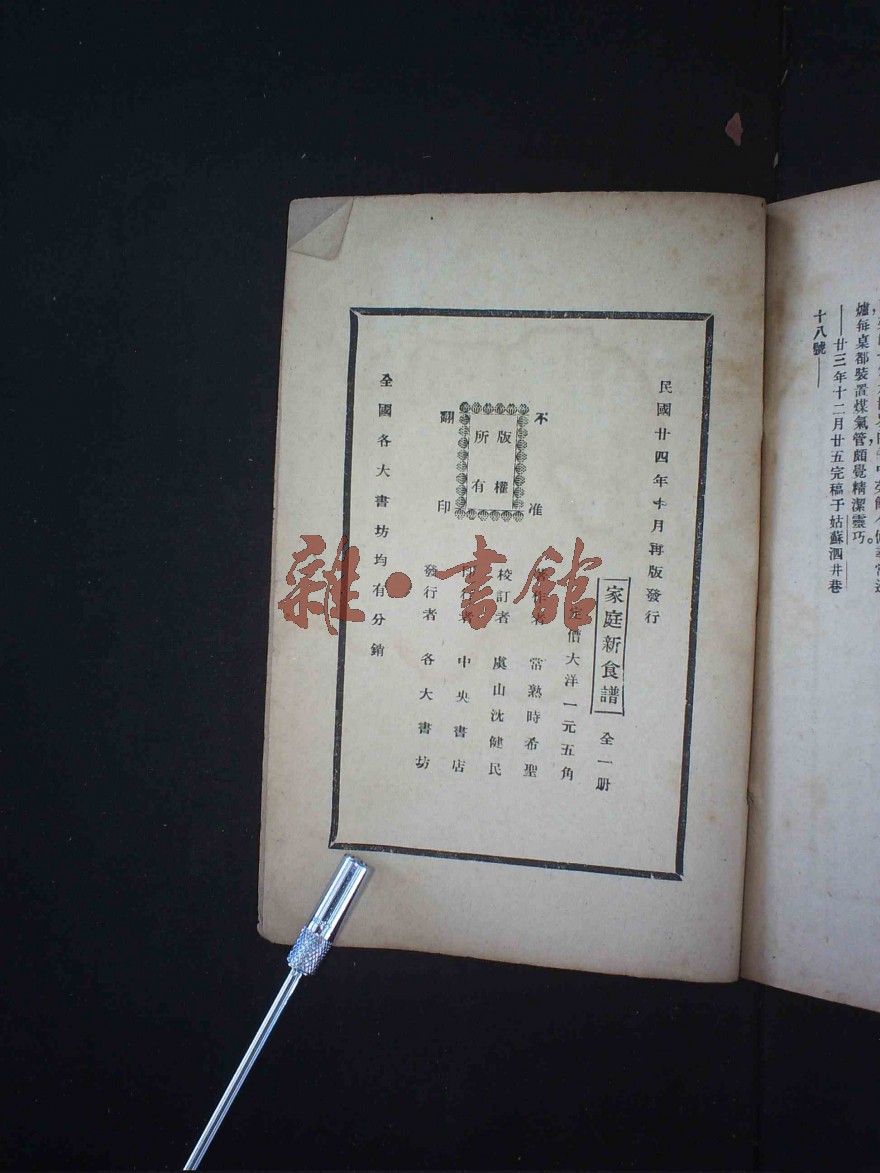 爐每桌都裝置煤氣管頗覺精潔靈巧。
——廿三年十二月廿五完稿于姑蘇泗井巷
十八號——
民國廿四年十月再版發行
家庭新食譜 全一册
定價大洋一元五角
著作者 常熟時希聖
校訂者 虞山沈健民
印行者 中央書店
發行者 各大書坊
不准翻印
版權所有
全國各大書坊均有分銷
雜·書館